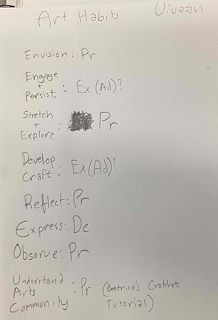 Art Habits Vivaan
Envision: Pr
Engage
+
Persist: Ex (Ad)?
Stretch
+
Explore: Pr
Develop
Craft: Ex (Ad)?
Reflect: Pr
Express: De
Observe: Pr
Understand
Arts : Pr (Beatrice's Crochet
Community Tutorial)